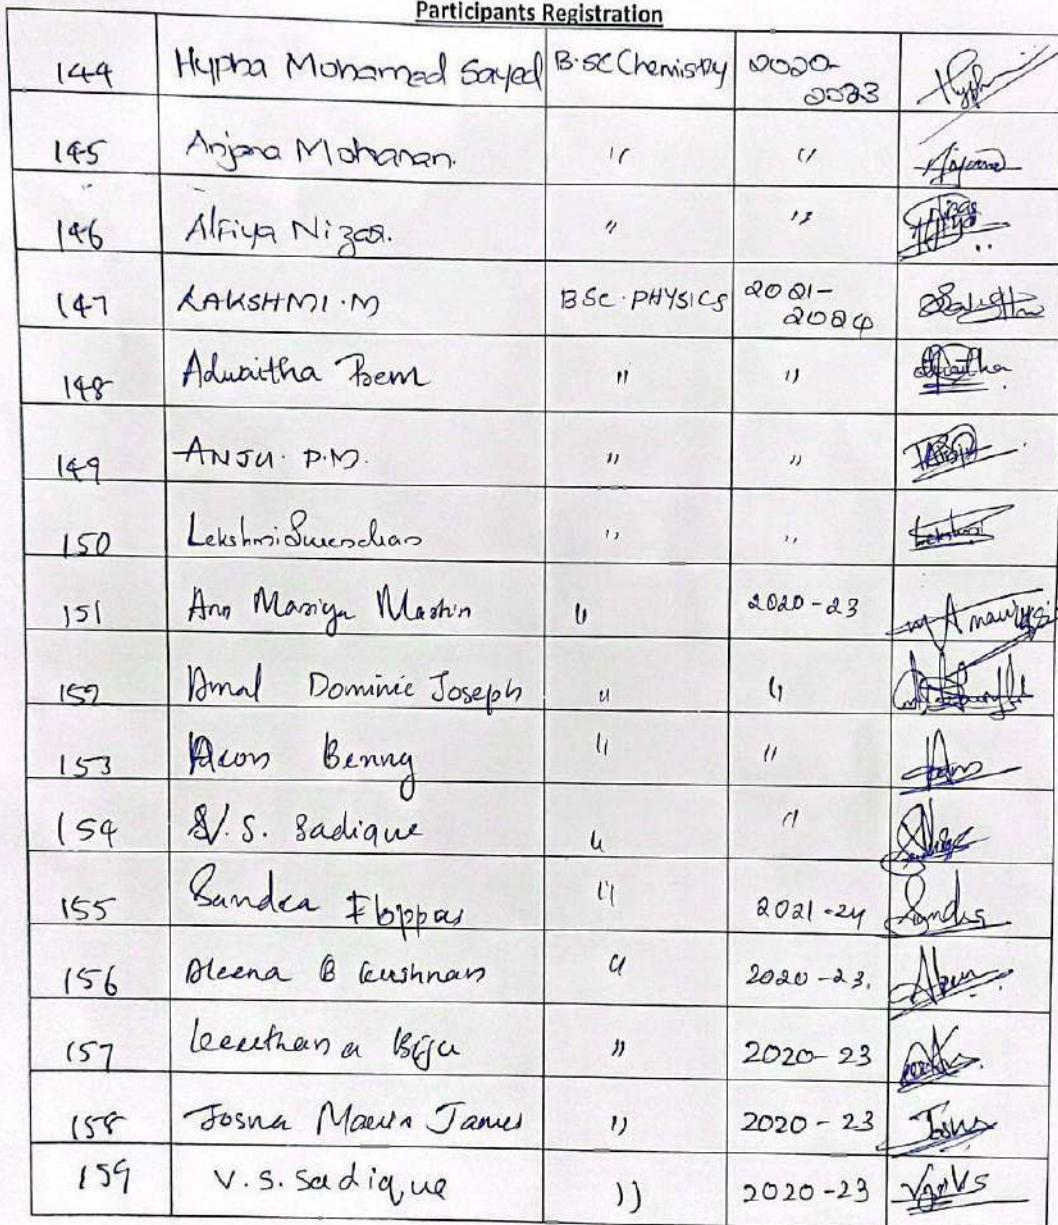 Participants Registration
144 Hypha Mohamed Sayed B.SC Chemistry 2020-2023
145 Anjana Mohanan. " "
146 Alfiya Nizar. " "
147 LAKSHMI.M BSC.PHYSICS 2021-2024
148 Adwaitha Prem " "
149 ANJU.P.M. " "
150 Lekshmi " "
151 Ann Mariya Martin " 2020-23
152 Amal Dominic Joseph " "
153 Benny " "
154 V.S. Sadique " "
155 Sandra " 2021-24
156 Aleena B " 2020-23.
157 Biju " 2020-23
158 Josna Maria James " 2020-23
159 V.S. Sadique " 2020-23